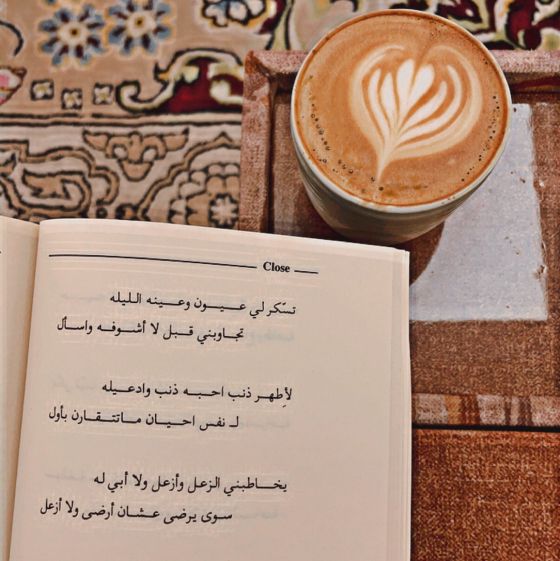 Close
تسّكر لي عيون وعينه الليله
تجاوبني قبل لا أشوفه واسأل
لأِطهر ذنب احبه ذنب وادعيله
لـ نفس احيان ماتتقارن بأول
يخاطبني الزعل وأزعل ولا أبي له
سوى يرضى عشان أرضى ولا أزعل